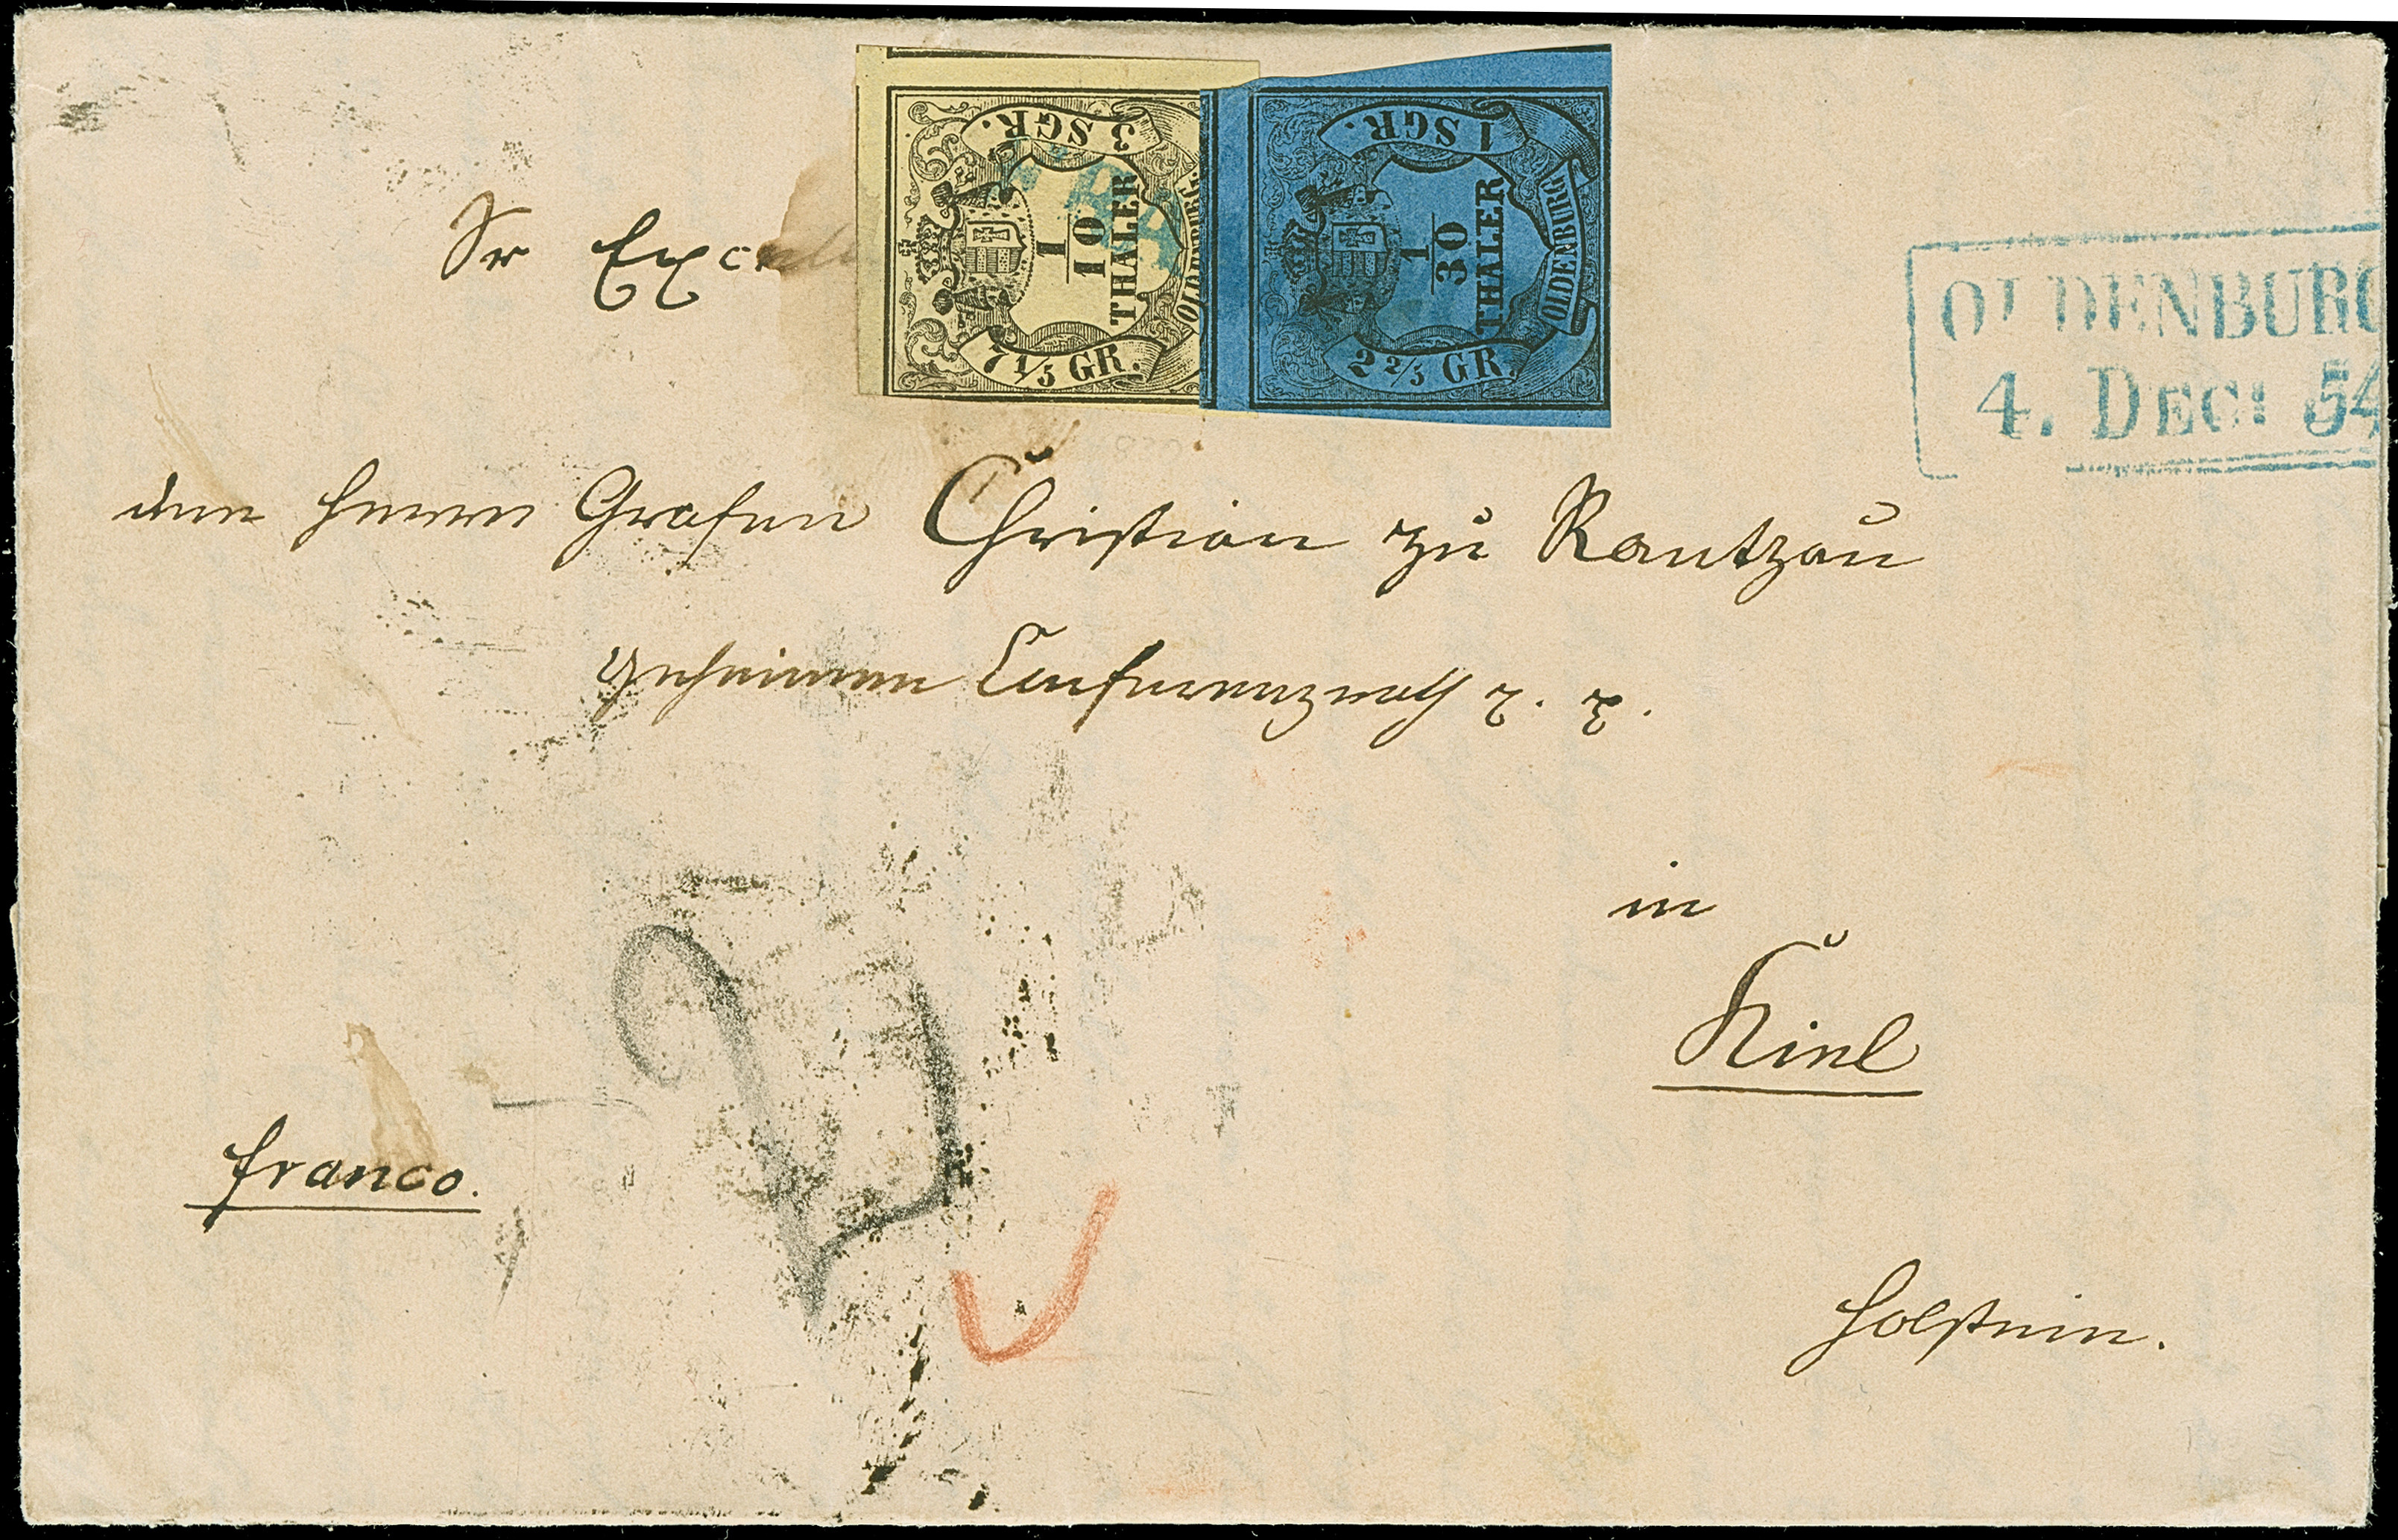 3 SGR.
1/10
THALER
OLDENBURG.
7 1/5 GR.
1 SGR.
1/30
THALER
OLDENBURG.
2 2/5 GR.
OLDENBURG
4. DEC: 54
Sr Excell
dem Herrn Grafen Christian zu Rantzau
Geheimen Conferenzrath
in
Kiel
franco.
Holstein.